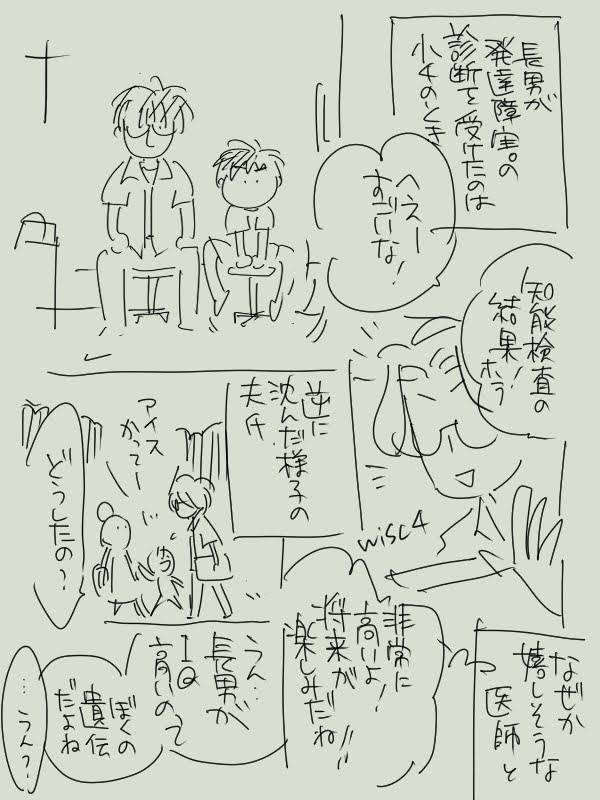 長男が
発達障害。の
診断を受けたのは
小4のとき
へえー
すごいな!
知能検査の
結果!
ホラ
wisc4
なぜか
嬉しそうな
医師と
非常に
高いよ!
将来が
楽しみだね!!
逆に
沈んだ様子の
夫氏
アイス
かってー
どうしたの?
うん…
長男が
IQ
高いのって
ぼくの
遺伝
だよね
…うん?